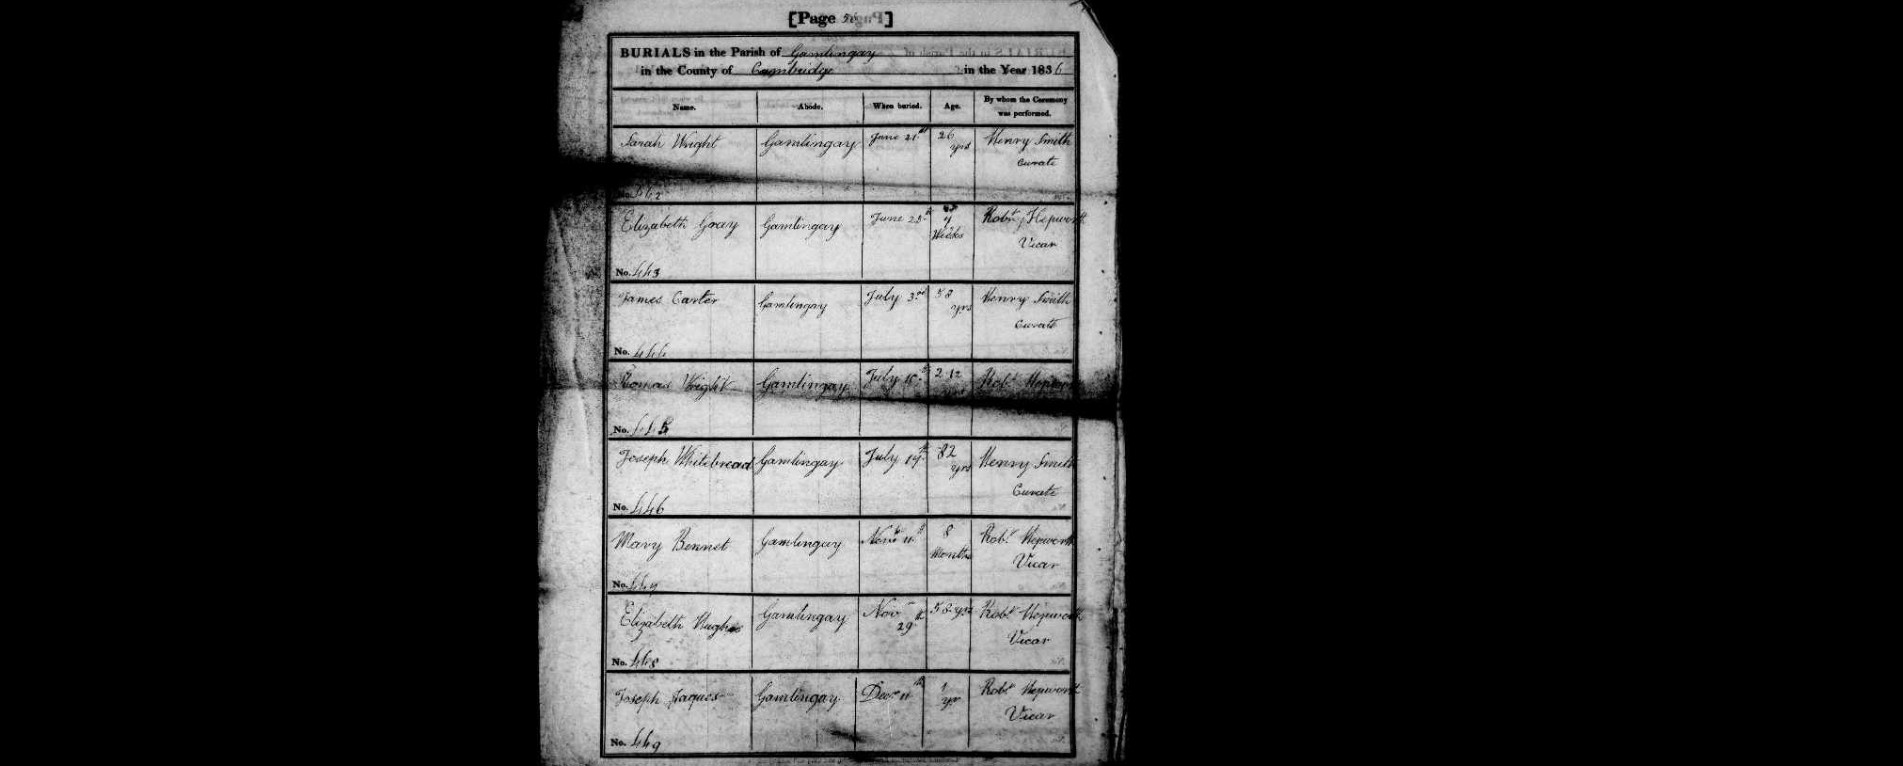 [Page
BURIALS in the Parish of Gamlingay
in the County of Cambridge in the Year 1836
Name. Abode. When buried. Age. By whom the Ceremony was performed.
Sarah Wright Gamlingay June 21st 26 yrs Henry Smith Curate
Elizabeth Gray Gamlingay Weeks Robt Hepworth Vicar
No. 443
James Carter Gamlingay July 3rd 38 yrs Henry Smith Curate
No. 444
Thomas Wright Gamlingay July Robt
No. 445
Joseph Whitebread Gamlingay July 82 yrs Henry Smith Curate
No. 446
Mary Bennet Gamlingay 8 Months Robt Hepworth Vicar
No. 447
Elizabeth Hughes Gamlingay Nov 29th 58 yrs Robt Hepworth Vicar
No. 448
Joseph Jaques Gamlingay Decr 11th 1 yr Robt Hepworth Vicar
No. 449